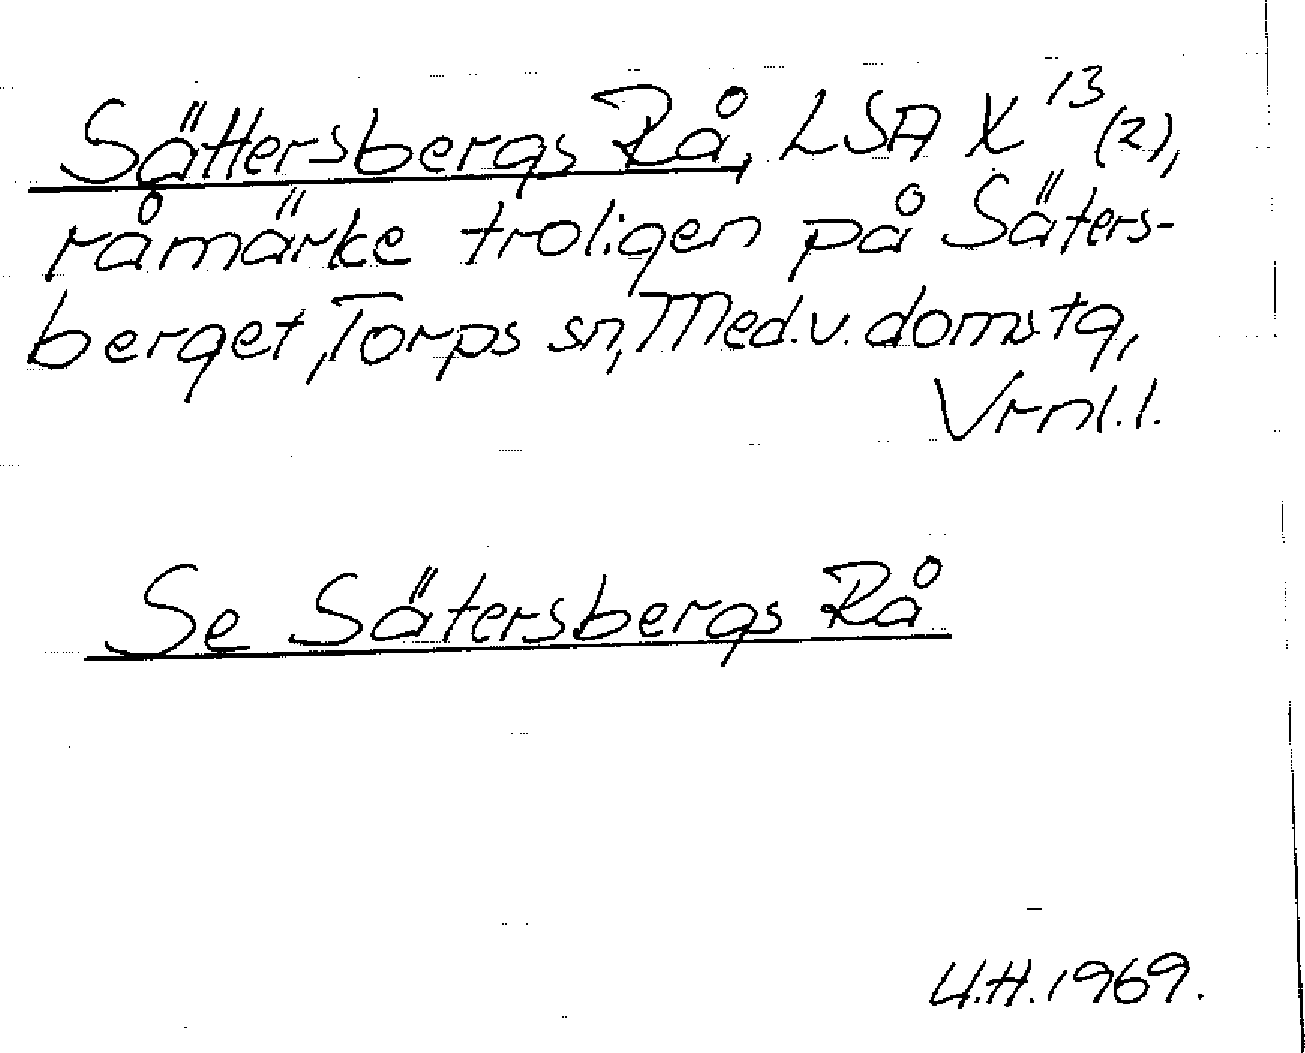 Sättersbergs Rå, LSA X 13 (2),
råmärke troligen på Säters-
berget, Torps sn, Med.v. domstg,
Vrnl.l.
Se Sätersbergs Rå
U.H. 1969.